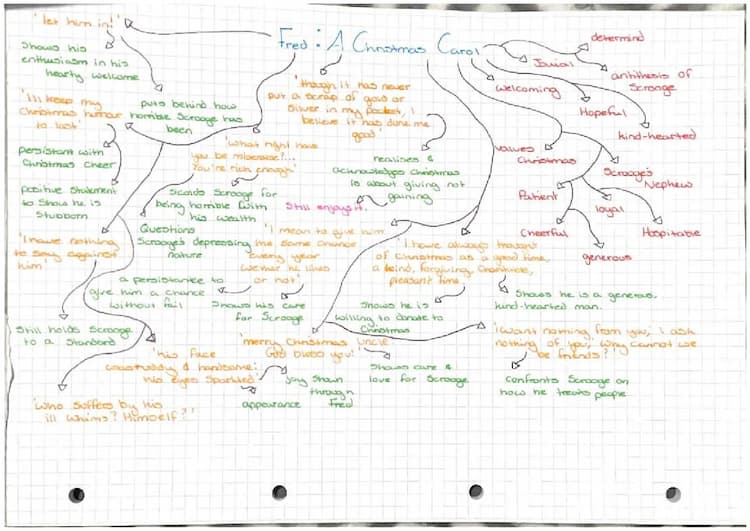 'let him in!'
Fred: A Christmas Carol
determind
Jovial
antithesis of
Scrooge
Shows his
enthusiasm in his
hearty welcome
welcoming
Hopeful
kind-hearted
'I'll keep my
Christmas humour
to last'
puts behind how
horrible Scrooge has
been
'though it has never
put a scrap of gold or
Silver in my pocket, I
believe it has done me
good'
values
Christmas
Scrooge's
Nephew
persistant with
Christmas Cheer
'What right have
you be miserable?...
You're rich enough'
realises &
acknowledges Christmas
is about giving not
gaining
Patient
loyal
Hospitable
Cheerful
generous
positive statement
to Show he is
Stubborn
Scolds Scrooge for
being horrible with
his wealth
Still enjoys it.
'I have nothing
to say against
him'
Questions
Scrooge's depressing
nature
'I mean to give him
the same chance
every year
he likes
or not'
'I have always thought
of Christmas as a good time,
a kind, forgiving, charitable,
pleasant time.
a persistance to
give him a chance
without fail
Shows his care
for Scrooge
Shows he is
willing to donate to
Christmas
Shows he is a generous,
kind-hearted man.
Still holds Scrooge
to a Standard
'his face
& handsome;
his eyes Sparkled'
'merry Christmas uncle,
God bless you!'
'I want nothing from you; I ask
nothing of you; Why cannot we
be friends?'
joy Shown
through
appearance Fred
Shows care &
love for Scrooge
confronts Scrooge on
how he treats people
'Who suffers by his
ill whims? Himself?'